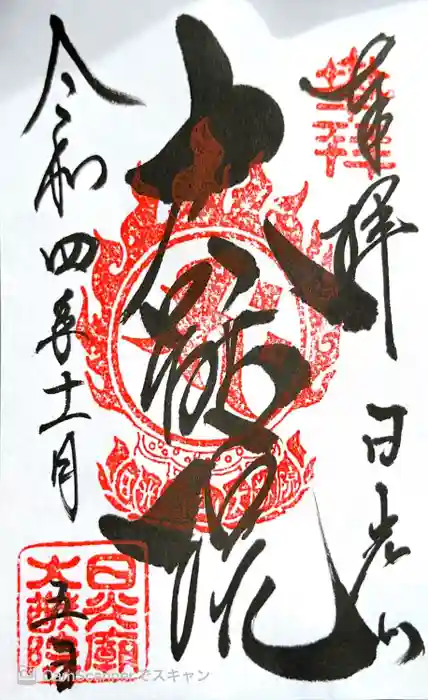 奉拝 日光山
大猷院
令和四年十一月
五日
日光廟
大猷院
CamScannerでスキャン